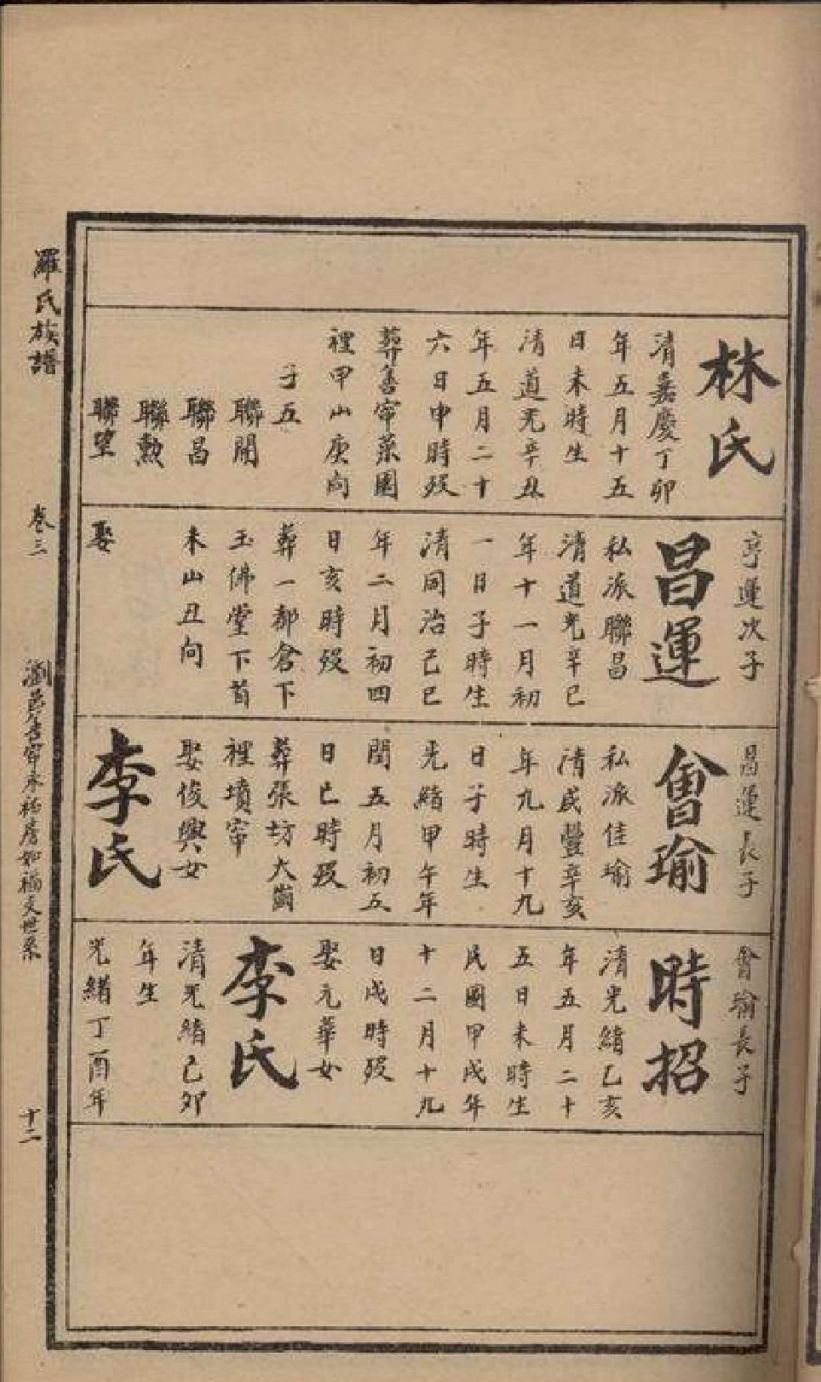 林氏
清嘉慶丁卯
年五月十五
日未時生
清道光辛丑
年五月二十
六日申時歿
葬善窄菜園
裡甲山庚向
子五
聯開
聯昌
聯勲
聯望
亨運次子
昌運
私派聯昌
清道光辛巳
年十一月初
一日子時生
清同治己巳
年二月初四
日亥時歿
葬一都倉下
玉佛堂下首
未山丑向
娶
昌運長子
會瑜
私派佳瑜
清咸豐辛亥
年九月十九
日子時生
光緒甲午年
閏五月初五
日巳時歿
葬張坊大
裡墳窄
娶俊興女
李氏
會瑜長子
時招
清光緒乙亥
年五月二十
五日未時生
民國甲戌年
十二月十九
日戌時歿
娶元華女
李氏
清光緒己卯
年生
光緒丁酉年
羅氏族譜
卷三
瀏邑善窄永祏房如福支世系
十二